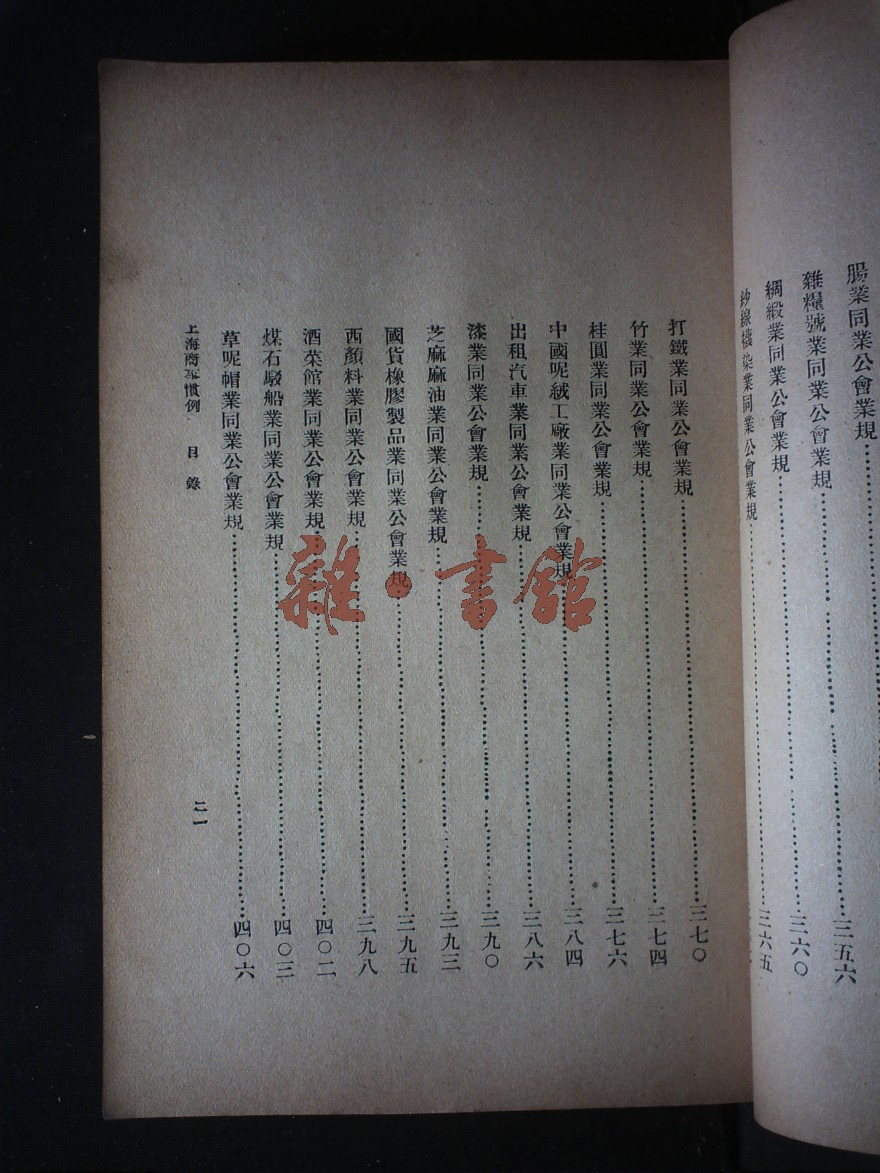 腸業同業公會業規……三五六
雜糧號業同業公會業規……三六〇
綢緞業同業公會業規……三六五
紗線襪染業同業公會業規……
打鐵業同業公會業規……三七〇
竹業同業公會業規……三七四
桂圓業同業公會業規……三七六
中國呢絨工廠業同業公會業規……三八四
出租汽車業同業公會業規……三八六
漆業同業公會業規……三九〇
芝麻麻油業同業公會業規……三九三
國貨橡膠製品業同業公會業規……三九五
西顏料業同業公會業規……三九八
酒菜館業同業公會業規……四〇二
煤石駁船業同業公會業規……四〇三
草呢帽業同業公會業規……四〇六
上海商事慣例 目錄
二一
雜·書館